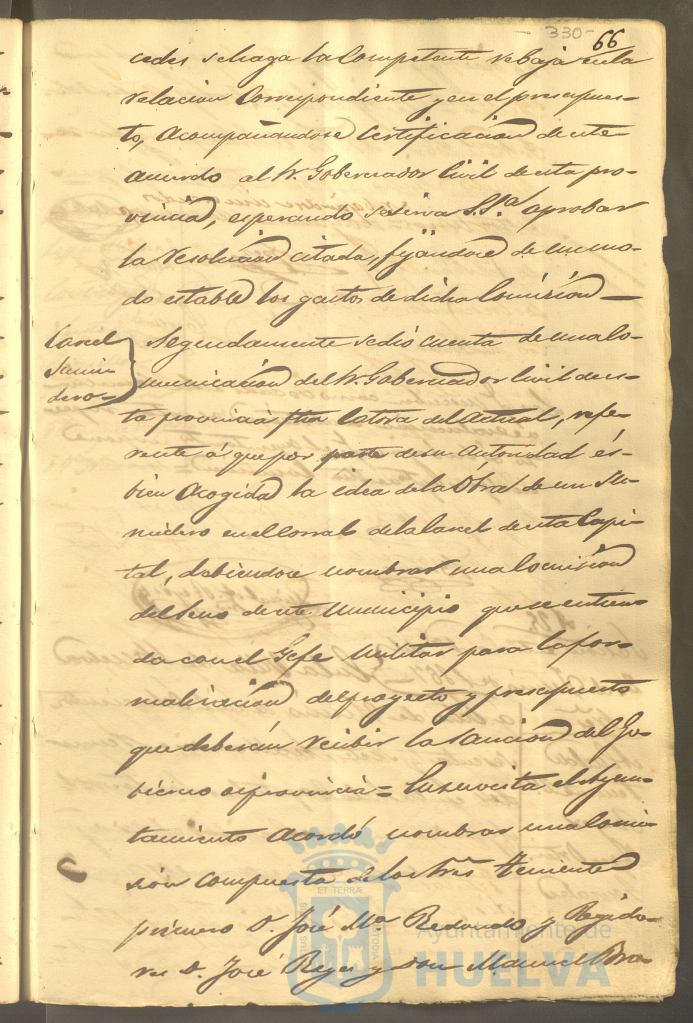 330-
66
cedes se haga la Competente rebaja en la
relacion Correspondiente y en el presupues-
to, acompañandose Certificacion de este
acuerdo al Sr. Gobernador Civil de esta pro-
vincia, esperando se sirva S.Sª aprobar
la resolucion citada, fijandose de un mo-
do estable los gastos de dicha Comision
Carcel
Sumi
dero
Segundamente se dió cuenta de una Co-
municacion del Sr. Gobernador Civil de es-
ta provincia fha Catorce del actual, refe-
rente á que por parte de su Autoridad és
bien acogida la idea de la Obra de un Su-
midero en el Corral de la Carcel de esta Capi-
tal, debiendose nombrar una Comision
del Seno de este Municipio que se entien-
da con el Gefe Militar para la for-
malizacion del proyecto y presupuesto
que deberán recibir la sancion del Go-
bierno de provincia = En su vista el Ayun-
tamiento acordó nombrar una Comi-
sión compuesta de los Sres Teniente
primero D. José Mª Redondo y Regido-
res D. José Reyes y Don Manuel
Ayuntamiento de
HUELVA